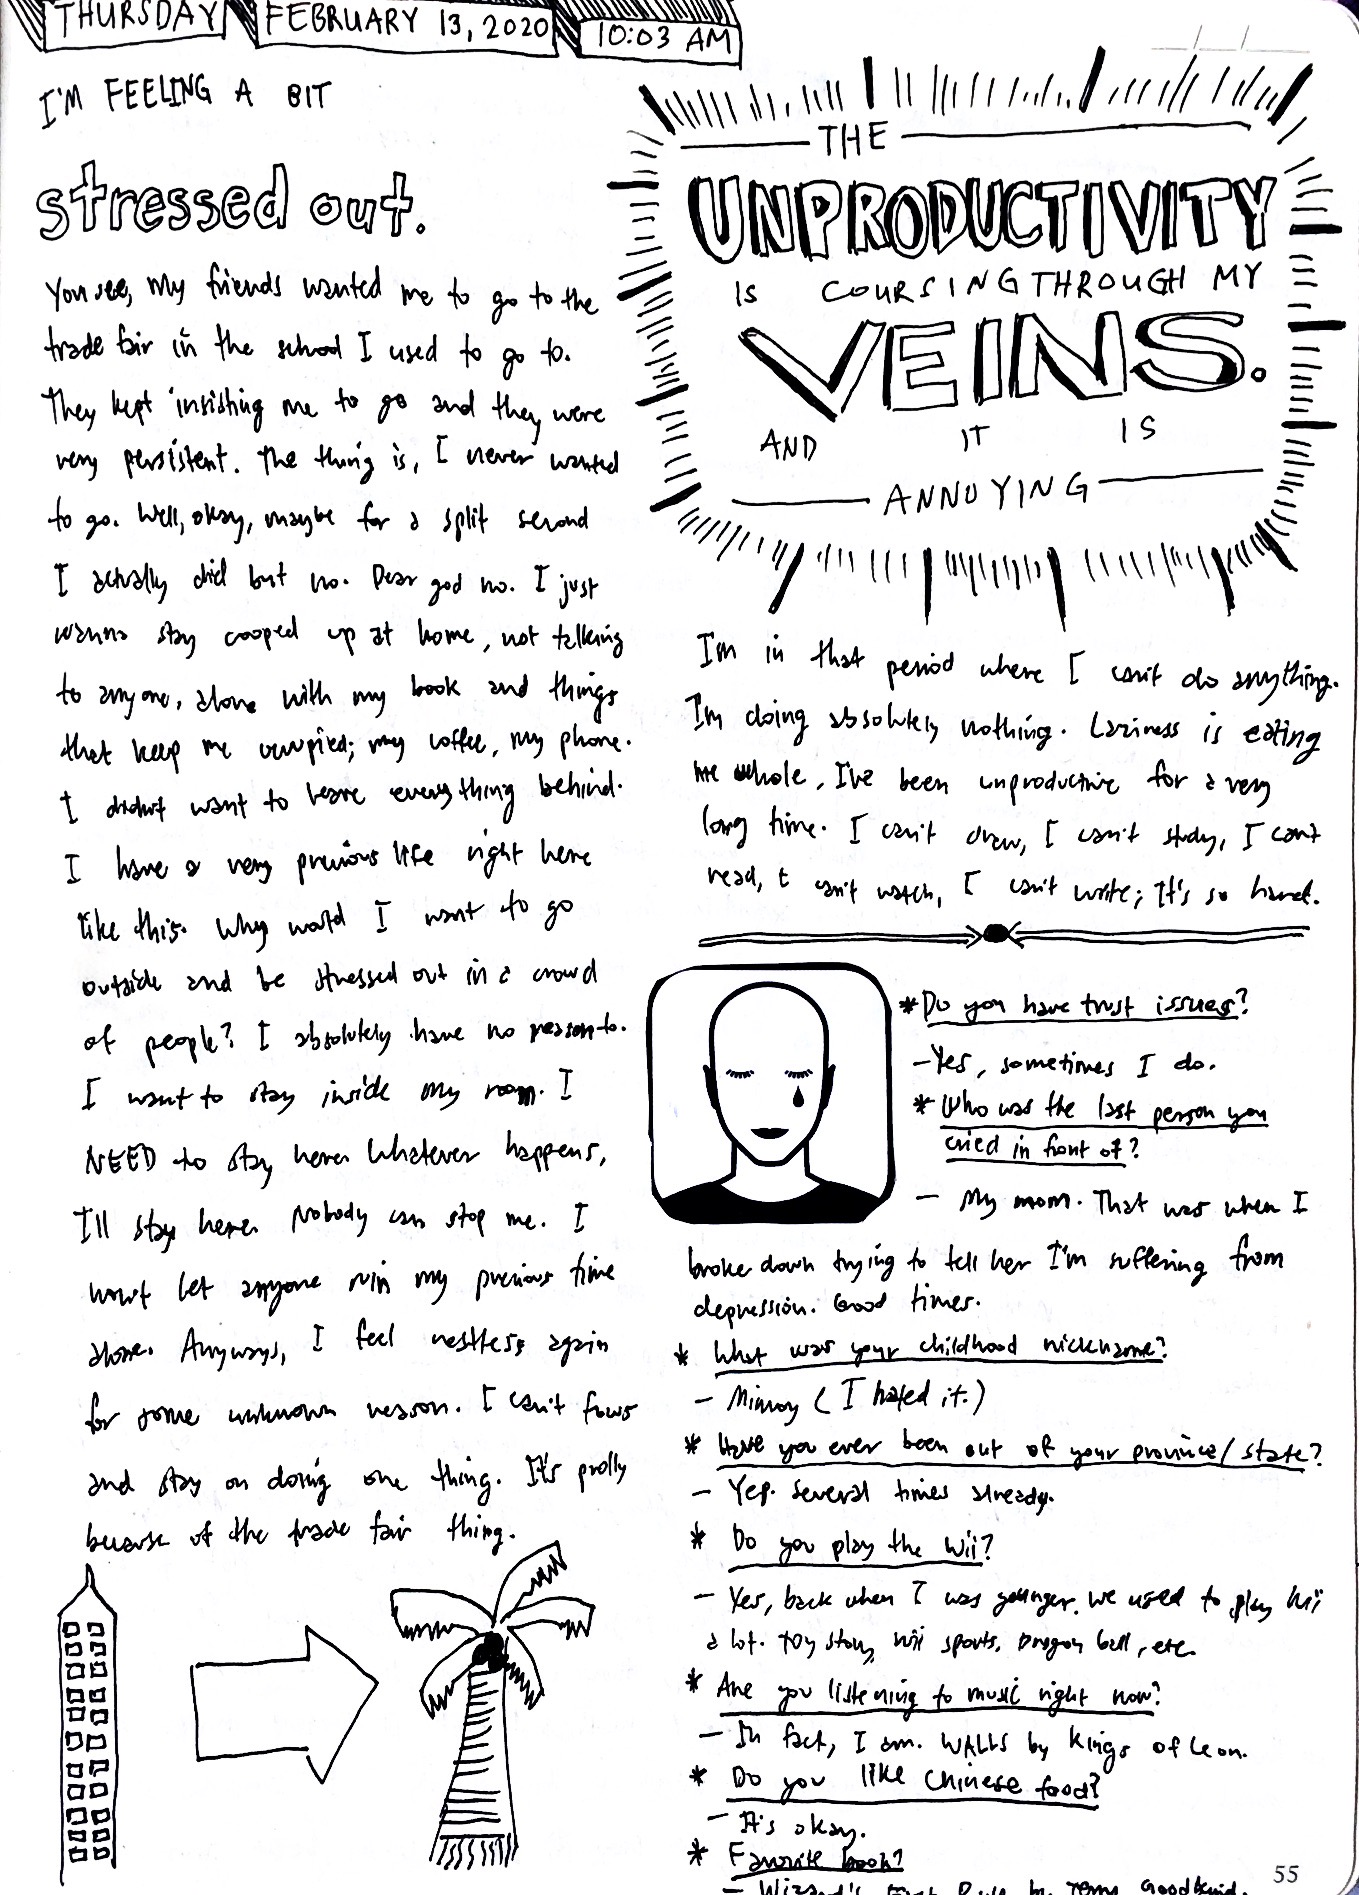 THURSDAY FEBRUARY 13, 2020 10:03 AM
I'M FEELING A BIT
stressed out.
You see, my friends wanted me to go to the
trade fair in the school I used to go to.
They kept insisting me to go and they were
very persistent. The thing is, I never wanted
to go. Well, okay, maybe for a split second
I actually did but no. Dear god no. I just
wanna stay cooped up at home, not talking
to anyone, alone with my book and things
that keep me occupied; my coffee, my phone.
I didn't want to leave everything behind.
I have a very precious life right here
like this. Why would I want to go
outside and be stressed out in a crowd
of people? I absolutely have no reason to.
I want to stay inside my room. I
NEED to stay here. Whatever happens,
I'll stay here. Nobody can stop me. I
won't let anyone ruin my precious time
alone. Anyways, I feel restless again
for some unknown reason. I can't focus
and stay on doing one thing. It's prolly
because of the trade fair thing.
THE
UNPRODUCTIVITY
IS COURSING THROUGH MY
VEINS.
AND IT IS
ANNOYING
I'm in that period where I can't do anything.
I'm doing absolutely nothing. Laziness is eating
me whole. I've been unproductive for a very
long time. I can't draw, I can't study, I can't
read, I can't watch, I can't write; It's so hard.
*Do you have trust issues?
-Yes, sometimes I do.
*Who was the last person you
cried in front of?
- My mom. That was when I
broke down trying to tell her I'm suffering from
depression. Good times.
* What was your childhood nickname?
- Mimoy (I hated it.)
* Have you ever been out of your province/state?
- Yep. Several times already.
* Do you play the Wii?
- Yes, back when I was younger. We used to play Wii
a lot. Toy story, Wii sports, Dragon ball, etc.
* Are you listening to music right now?
- In fact, I am. WALLS by Kings of Leon.
* Do you like Chinese food?
- It's okay.
* Favorite book?
- Wizard's First Rule by Terry Goodkind.
55